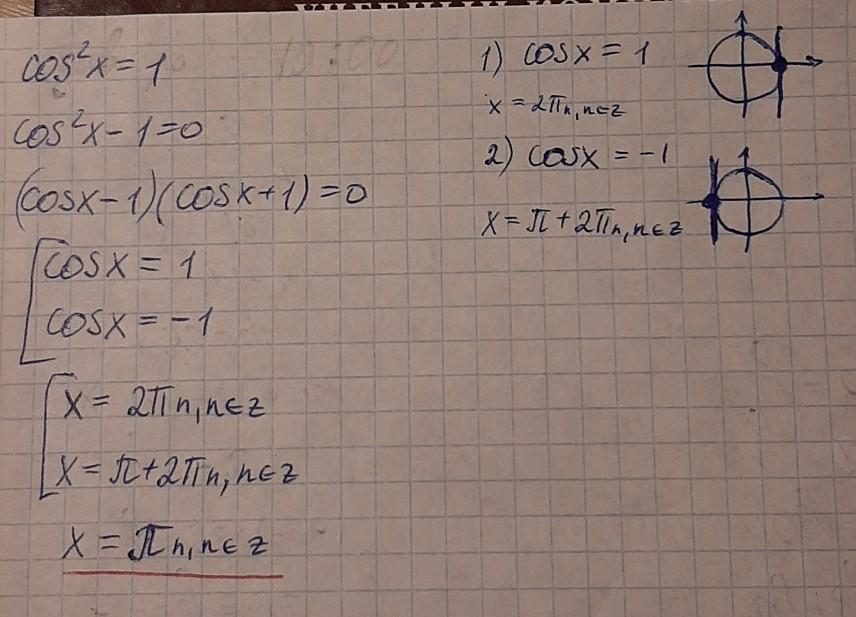 cos²x = 1
cos²x - 1 = 0
(cosx - 1)(cosx + 1) = 0
cosx = 1
cosx = -1
x = 2πn, n∈z
x = π + 2πn, n∈z
x = πn, n∈z
1) cosx = 1
x = 2πn, n∈z
2) cosx = -1
x = π + 2πn, n∈z